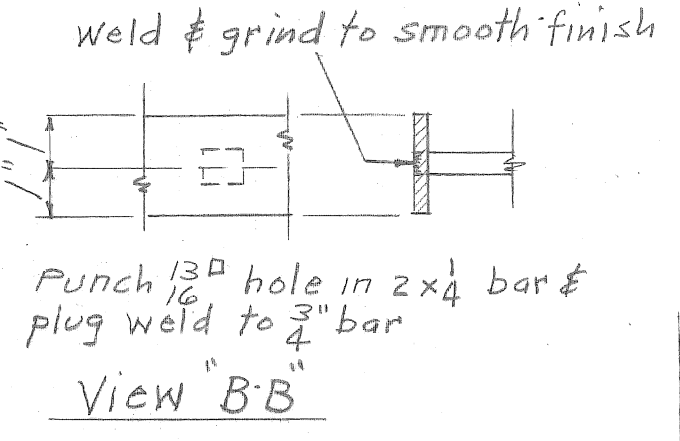 Weld & grind to smooth finish
1"
1"
Punch 13/16 □ hole in 2 x 1/4 bar &
plug weld to 3/4" bar
View "B-B"